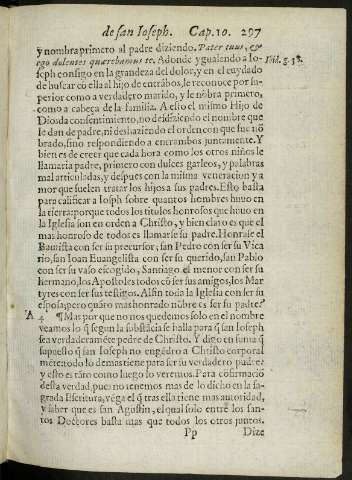 de san Ioseph. Cap. 10. 297
y nombra primero al padre diziendo. Pater tuus, &
ego dolentes quærebamus te. Adonde ygualando a Io-
seph consigo en la grandeza del dolor, y en el cuydado
de buscar cō ella al hijo de entrābos, le reconoce por su-
perior como a verdadero marido, y le nōbra primero,
como a cabeça de la familia. A esto el mismo Hijo de
Dios da consentimiento, no desdiziendo el nombre que
le dan de padre, ni deshaziendo el orden con que fue nō
brado, sino respondiendo a entrambos juntamente. Y
bien es de creer que cada hora como los otros niños le
llamaria padre, primero con dulces garleos, y palabras
mal articuladas, y despues con la misma veneracion y a
mor que suelen tratar los hijos a sus padres. Esto basta
para calificar a Ioseph sobre quantos hombres huuo en
la tierra: porque todos los titulos honrosos que huuo en
la Iglesia son en orden a Christo, y bien claro es que el
mas honroso de todos es llamarse su padre. Honrase el
Bautista con ser su precursor, san Pedro con ser su Vica
rio, san Ioan Euangelista con ser su querido, san Pablo
con ser su vaso escogido, Santiago el menor con ser su
hermano, los Apostoles todos cō ser sus amigos, los Mar
tyres con ser sus testigos. Al fin toda la Iglesia con ser su
esposa; pero quāto mas honrado nōbre es ser su padre?
A 4 ¶ Mas por que no nos quedemos solo en el nombre
veamos lo q̄ segun la substācia se halla para q̄ san Ioseph
sea verdaderamēte padre de Christo. Y digo en suma q̄
supuesto q̄ san Ioseph no engēdrò a Christo corporal
mēte, todo lo demas tiene para ser su verdadero padre:
y esto es tāto como luego lo veremos. Para cōfirmaciō
desta verdad, pues no tenemos mas de lo dicho en la sa-
grada Escritura, vēga el q̄ tras ella tiene mas autoridad,
y saber que es san Agustin, el qual solo entre los san-
tos Doctores basta mas que todos los otros juntos.
Pp Dize